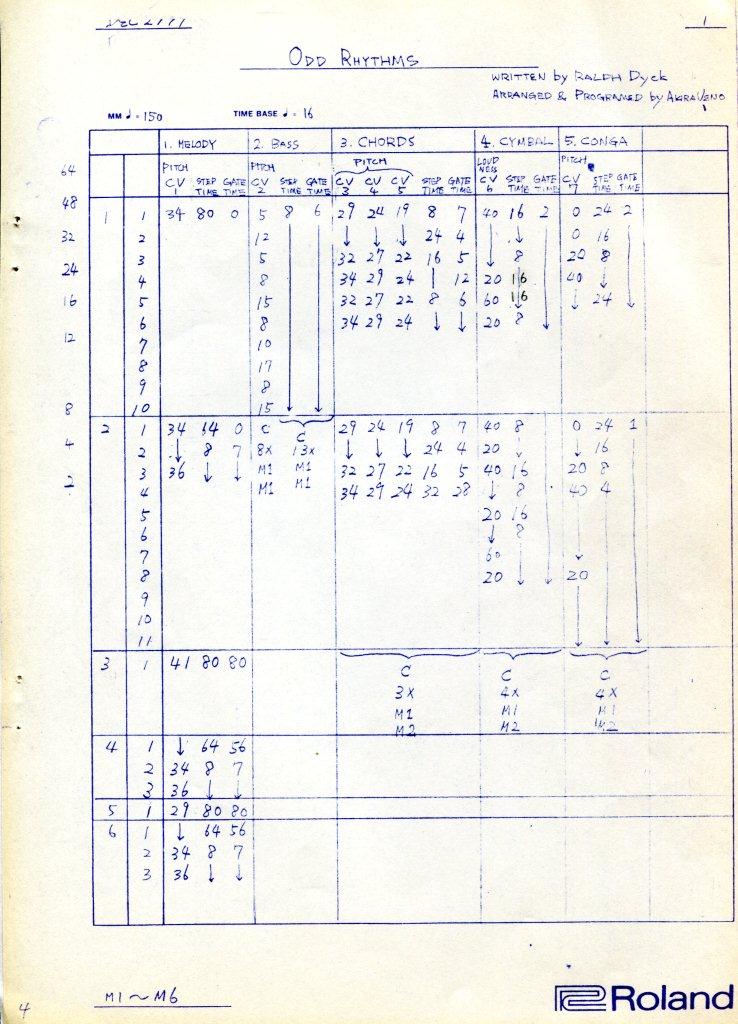 1
ODD RHYTHMS
WRITTEN by RALPH Dyck
ARRANGED & PROGRAMED by AKIRA UENO
MM ♩ = 150 TIME BASE ♩ = 16
1. MELODY 2. BASS 3. CHORDS 4. CYMBAL 5. CONGA
PITCH PITCH PITCH LOUD NESS PITCH
CV 1 STEP TIME GATE TIME CV 2 STEP TIME GATE TIME CV 3 CV 4 CV 5 STEP TIME GATE TIME CV 6 STEP TIME GATE TIME CV 7 STEP TIME GATE TIME
64
48
32
24
16
12
8
4
2
1 1 34 80 0 5 8 6 29 24 19 8 7 40 16 2 0 24 2
2 12 ↓ ↓ ↓ 24 4 ↓ 0 16
3 5 32 27 22 16 5 ↓ 8 20 8
4 8 34 29 24 | 12 20 16 40 ↓
5 15 32 27 22 8 6 60 16 ↓ 24 ↓
6 8 34 29 24 ↓ ↓ 20 8 ↓
7 10
8 17
9 8
10 15 ↓ ↓
2 1 34 64 0 C C 29 24 19 8 7 40 8 0 24 1
2 ↓ 8 7 8x 13x ↓ ↓ ↓ 24 4 20 ↓ ↓ 16
3 36 ↓ ↓ M1 M1 32 27 22 16 5 40 16 20 8
4 M1 M1 34 29 24 32 28 ↓ 8 40 4
5 20 16
6 ↓ 8
7 60 ↓
8 20 ↓ ↓ 20
9
10
11 ↓ ↓ ↓
3 1 41 80 80 C C C
3x 4x 4x
M1 M1 M1
M2 M2 M2
4 1 ↓ 64 56
2 34 8 7
3 36 ↓ ↓
5 1 29 80 80
6 1 ↓ 64 56
2 34 8 7
3 36 ↓ ↓
M1 ~ M6
4
Roland